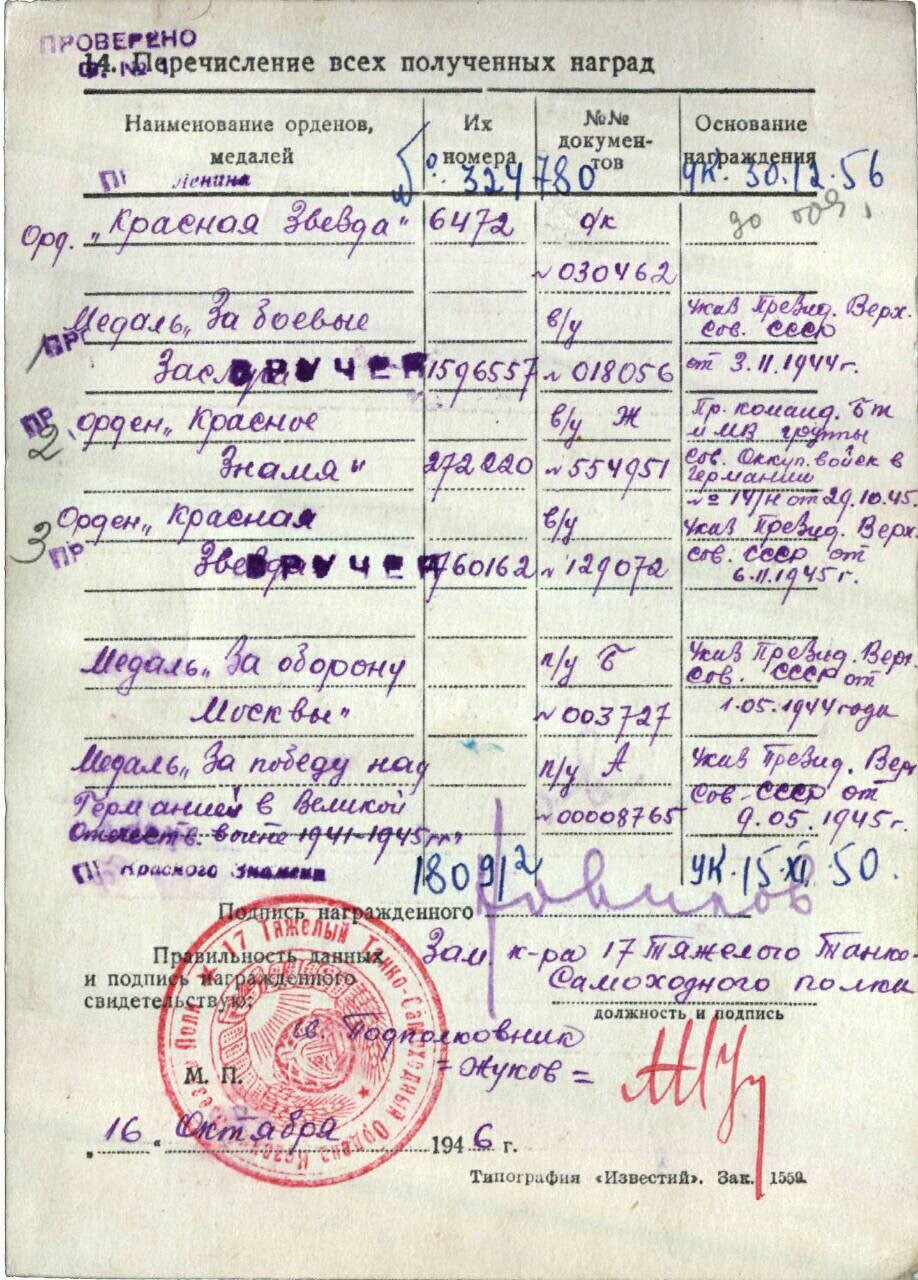 ПРОВЕРЕНО
14. Перечисление всех полученных наград
Наименование орденов, медалей
Их номера
№№ документов
Основание награждения
Ленина
№ 324780
УК. 30.12.56
Орд. „Красная Звезда" 6472 о/к
№ 030462
Медаль „За боевые в/у Указ Презид. Верх. Сов. СССР
ВРУЧЕН 1596557 № 018056 от 3.11.1944г.
2. орден „Красное в/у Ж Пр. команд. БТ и МВ группы
Знамя" 272220 № 554951 Сов. Оккуп. войск в Германии
№ 14/н от 29.10.45
3 Орден „Красная в/у Указ Презид. Верх.
Звезда ВРУЧЕН 1760162 № 129072 Сов. СССР от 6.11.1945г.
Медаль „За оборону п/у Б Указ Презид. Верх. Сов. СССР от
Москвы" № 003727 1.05.1944 года
Медаль „За победу над п/у А Указ Презид. Вер
Германией в Великой № 00008765 Сов. СССР от 9.05.1945г.
Отечеств. войне 1941-1945гг"
Красного Знамени 18091/2 УК. 15.XI.50.
Подпись награжденного Новиков
Правильность данных
и подпись награжденного
свидетельствую:
Зам к-ра 17 Тяжелого Танко-
Самоходного полка
должность и подпись
Подполковник
= Жуков =
М. П.
17 Тяжелый Танко-Самоходный Ордена
„16" Октября 1946 г.
Типография «Известий». Зак. 1559.